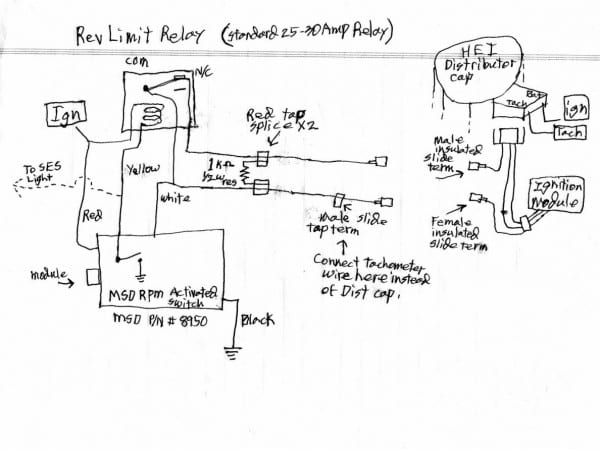 Rev Limit Relay (standard 25-30Amp Relay)
com
N/C
Ign
To SES
Light
Red
Yellow
white
1kΩ
1/2w
res
Red tap
splice x2
male slide
tap term
Connect tachometer
wire here instead
of Dist cap.
module
MSD Rpm Activated
switch
MSD P/N # 8950
Black
HEI
Distributor
cap
Bat
Tach
ign
Tach
Male
insulated
slide
term
Female
insulated
slide term
Ignition
Module